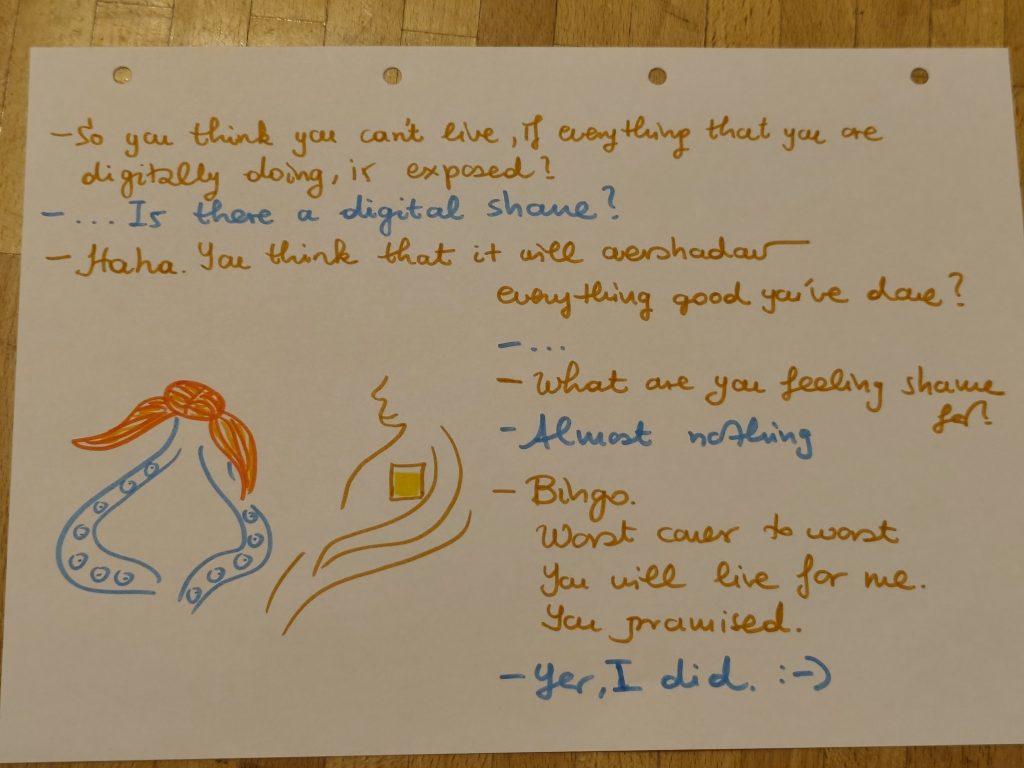 - So you think you can't live, if everything that you are
digitally doing, is exposed?
- ... Is there a digital shame?
- Haha. You think that it will overshadow
everything good you've done?
- ...
- What are you feeling shame
for?
- Almost nothing
- Bingo.
Worst comes to worst
You will live for me.
You promised.
- Yes, I did. :-)